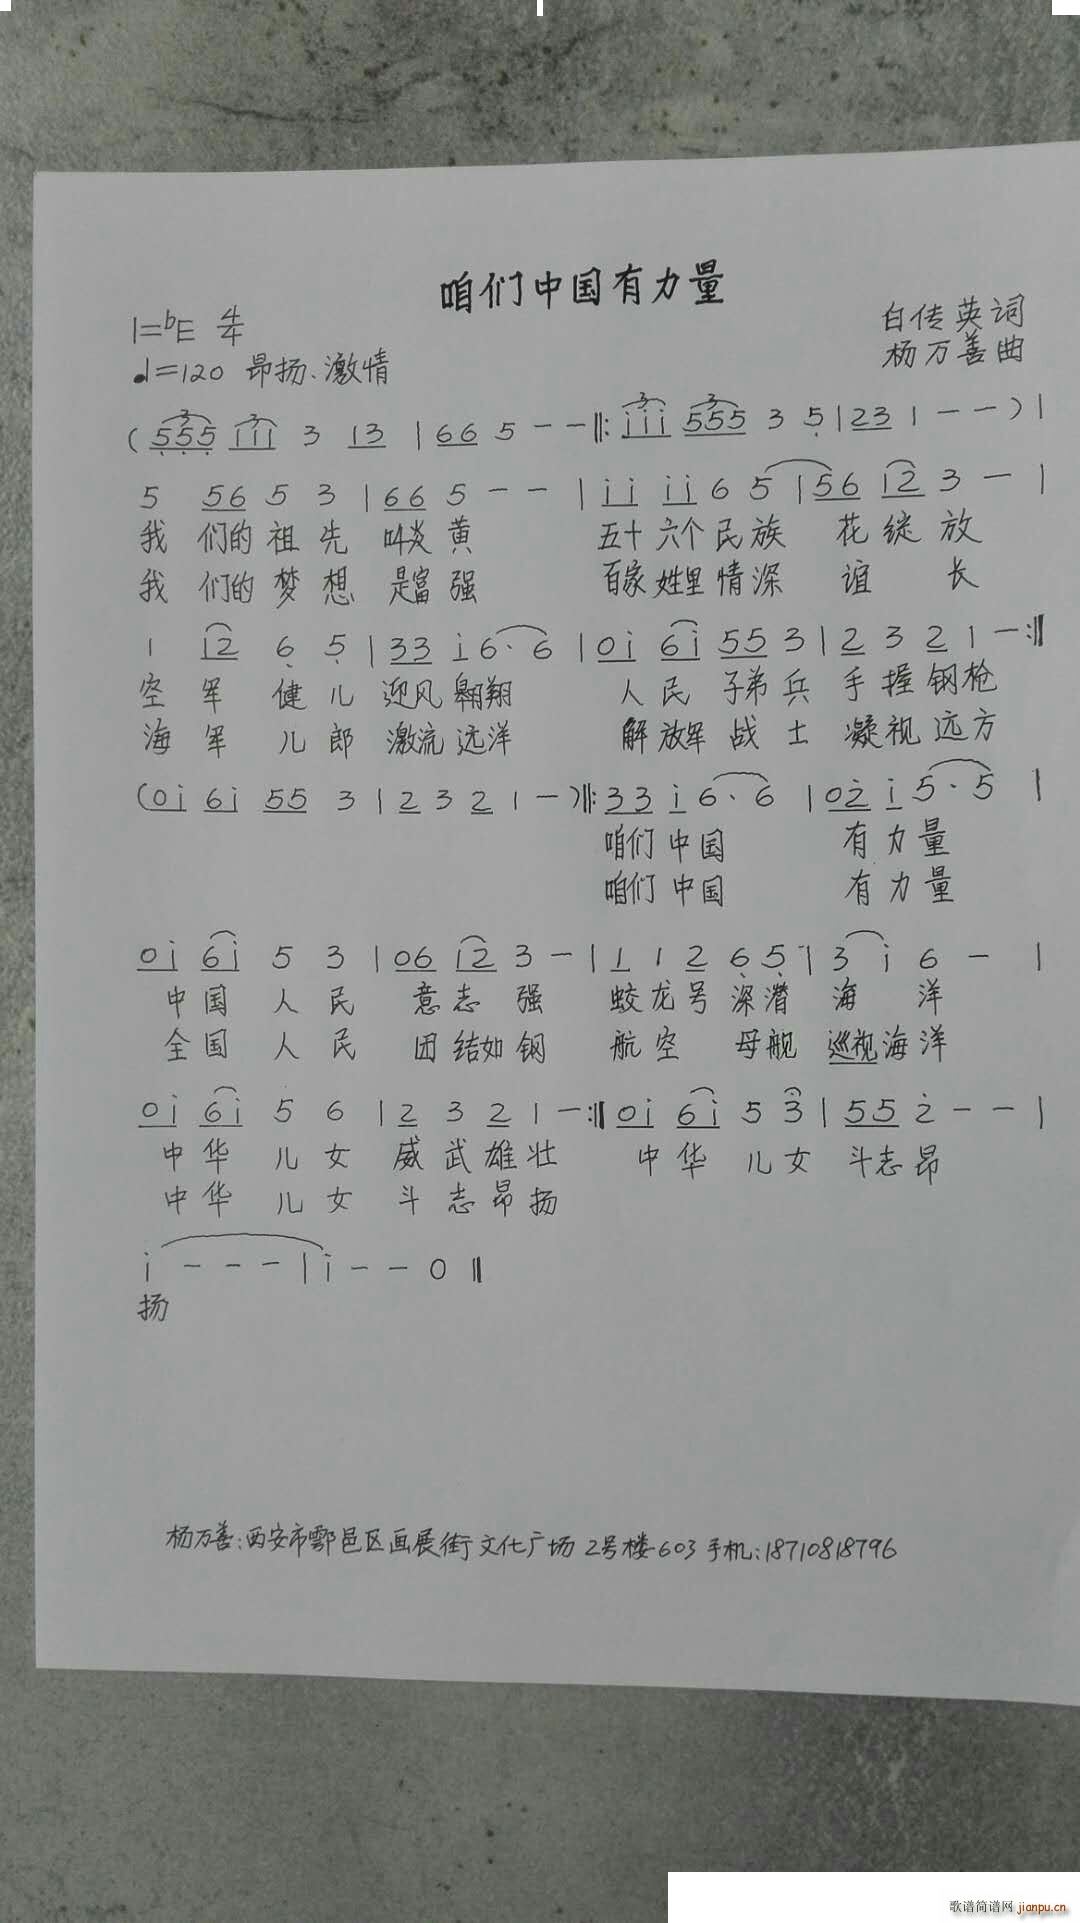 咱们中国有力量
1=bE 4/4
白传英词
♩=120 昂扬、激情
杨万善曲
(555 iii 3 13 | 66 5 - - ‖: iii 555 3 5 | 23 1 - - ) |
5 56 5 3 | 66 5 - - | ii ii 6 5 | 56 i2 3 - |
我 们的 祖 先 叫炎 黄 五十 六个 民 族 花 绽 放
我 们的 梦 想 是富 强 百家 姓里 情 深 谊 长
1 i2 6 5 | 33 i 6· 6 | 0i 6i 55 3 | 2 3 2 1 - :‖
空 军 健 儿 迎风 翱翔 人 民 子弟 兵 手 握 钢 枪
海 军 儿 郎 激流 远洋 解 放军 战 士 凝 视 远 方
(0i 6i 55 3 | 2 3 2 1 - )‖: 33 i 6· 6 | 02 i 5· 5 |
咱们 中 国 有 力 量
咱们 中 国 有 力 量
0i 6i 5 3 | 06 i2 3 - | 1 1 2 6 5 | 3 i 6 - |
中 国 人 民 意 志 强 蛟 龙 号 深 潜 海 洋
全 国 人 民 团 结如 钢 航 空 母 舰 巡视 海 洋
0i 6i 5 6 | 2 3 2 1 - :‖ 0i 6i 5 3 | 55 2 - - |
中 华 儿 女 威 武 雄 壮 中 华 儿 女 斗志 昂
中 华 儿 女 斗 志 昂 扬
i - - - | i - - 0 ‖
扬
杨万善:西安市鄠邑区画展街文化广场2号楼603手机:18710818796
歌谱简谱网 jianpu.cn